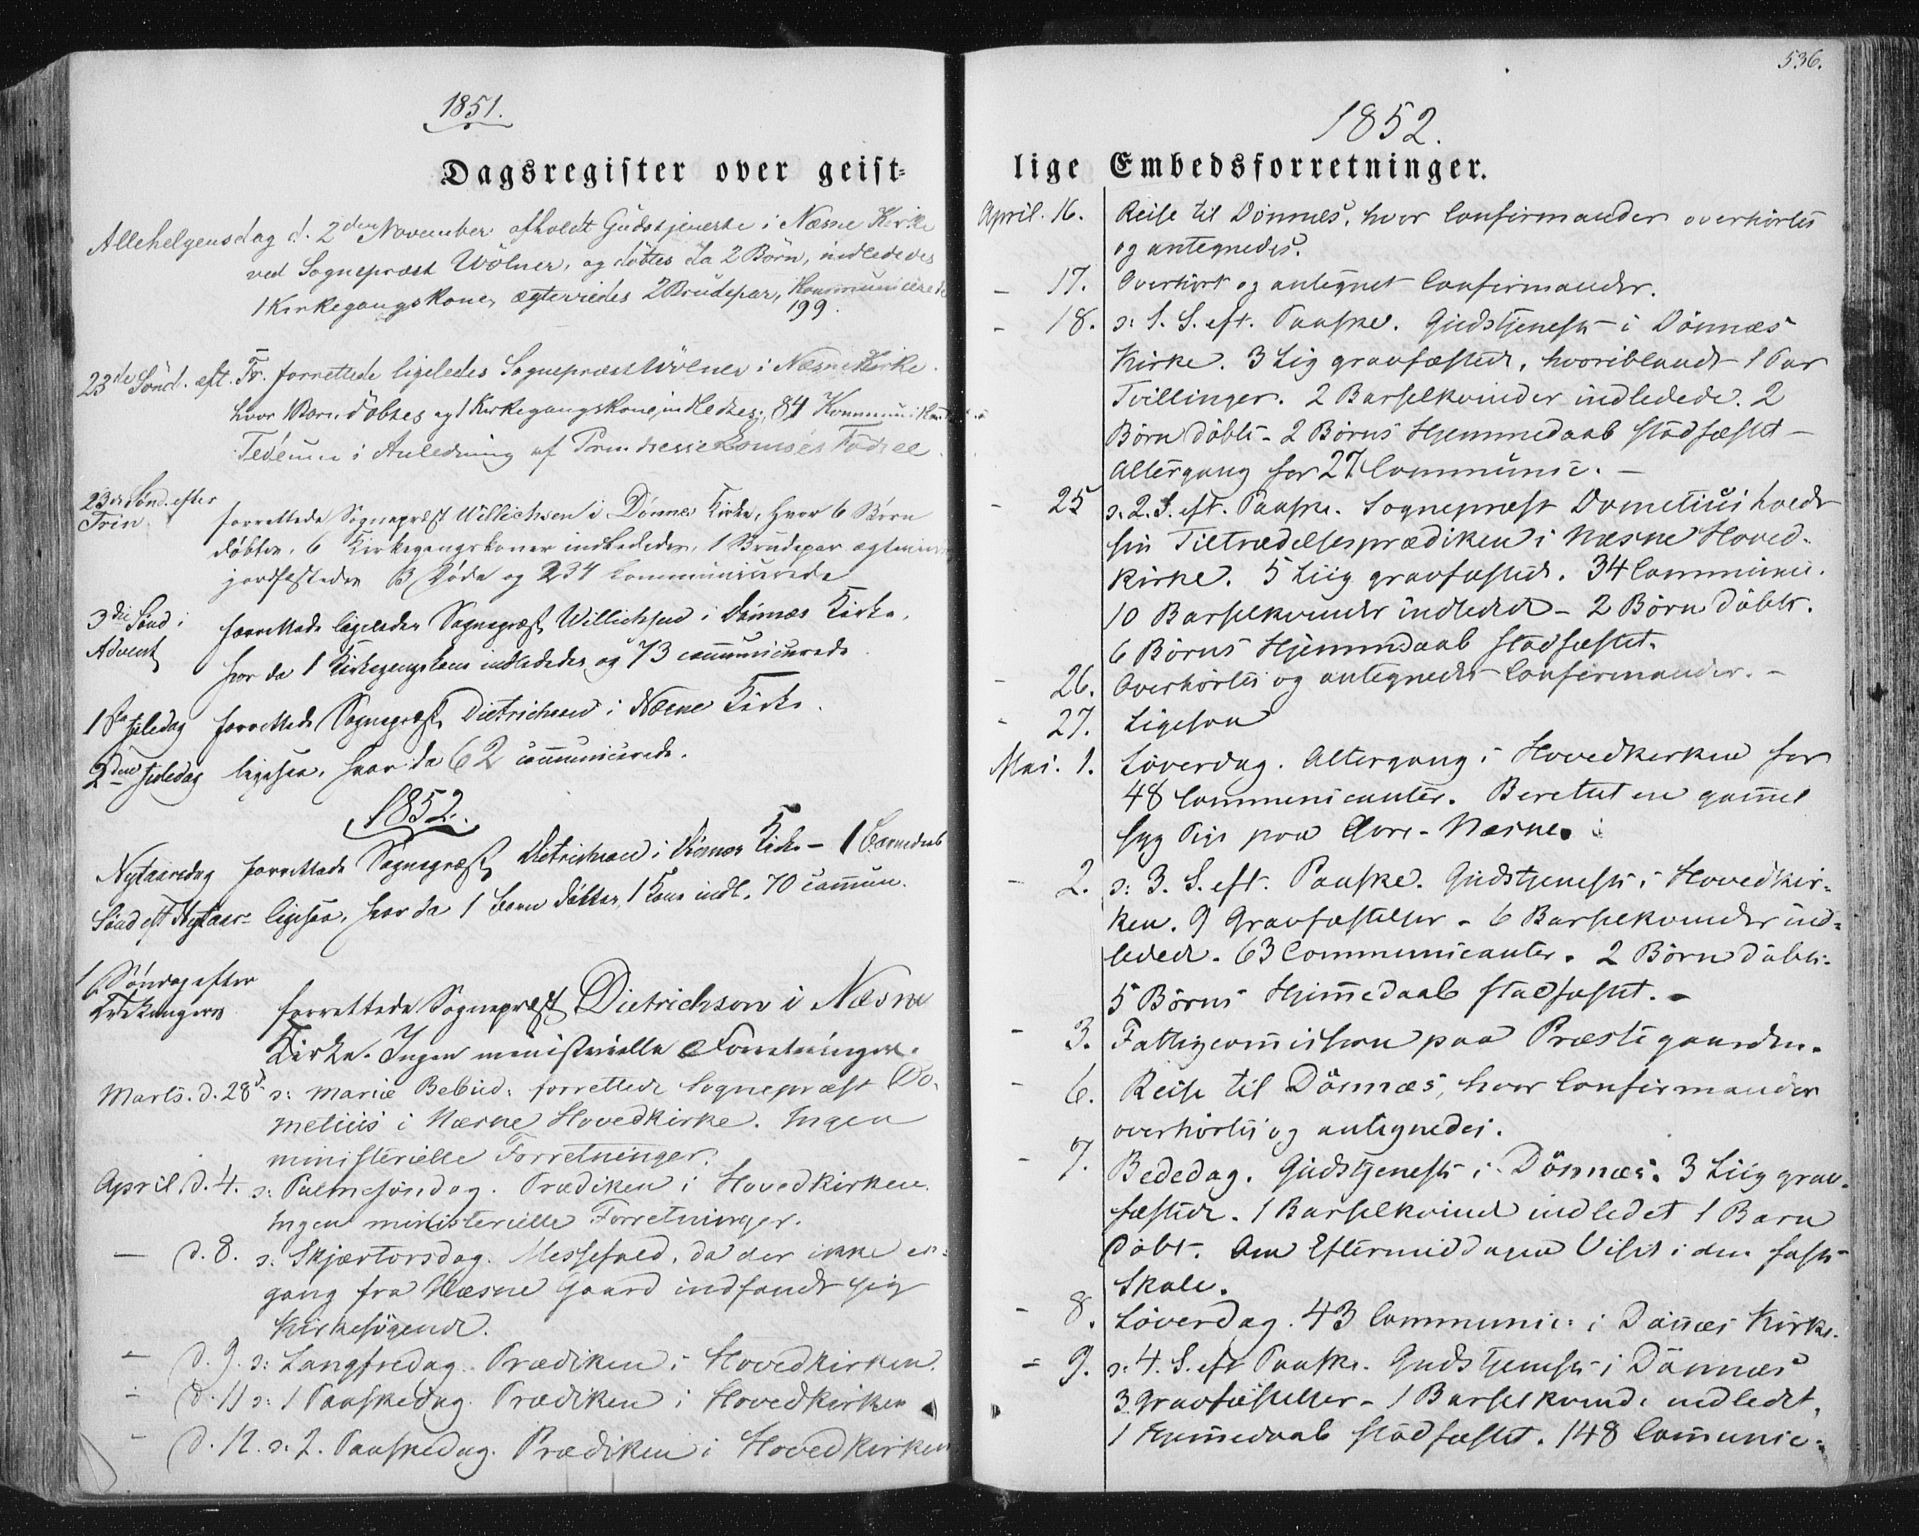 1851.
Dagsregister over geist-
Allehelgensdag d. 2den November afholdt Gudstjeneste i Næsne Kirke
ved Sognepræst Wölner, og döbtes da 2 Börn, indledes
1 Kirkegangskone, ægteviedes 2 Brudepar, Kommunicerede
199.
23de Sönd. eft. Tr. forrettede ligeledes Sognepræst Wölner i Næsne Kirke
hvor 1 Barn döbtes og 1 Kirkegangskone indledtes; 84
Tedeum i Anledning af Prindsesse Louises Födsel.
23de Sönd. efter
Trin. forrettede Sognepræst Willichsen i Dönnes Kirke, hvor 6 Börn
döbtes, 6 Kirkegangskoner indlededes, 1 Brudepar
jordfæstedes 3 Döde og 234 communicerede
3die Sönd i forrettede ligeledes Sognepræst Willichsen i Dönnæs Kirke,
Advent hvor da 1 Kirkegangskone indlededes og 73 communicerede.
1ste Juledag forrettede Sognepræst Dietrichson i Næsne Kirke.
2den Juledag ligesaa, hvor da 62 communicerede.
1852.
Nytaarsdag forrettede Sognepræst Dietrichson i Dönnæs Kirke – 1 Barnedaab
Sönd eft Nytaar ligesaa, hvor da 1 Barn döbtes, 1 Kone indl. 70 commun.
1 Söndag efter
H. 3 Kongers forrettede Sognepræst Dietrichson i Næsne
Kirke. Ingen ministerielle Forretninger.
Marts. d. 28de s: Mariæ Bebud: forrettede Sognepræst Do-
metius i Næsne Hovedkirke. Ingen
ministerielle Forretninger.
April d. 4. s: Palmesöndag. Prædiken i Hovedkirken.
Ingen ministerielle Forretninger.
— d. 8. s: Skjærtorsdag. Messefald, da der ikke en-
gang fra Næsne Gaard indfandt sig
Kirkesögende.
— d. 9. s: Langfredag. Prædiken i Hovedkirken.
- d. 11 s: 1 Paaskedag. Prædiken i Hovedkirken
- d. 12. s: 2. Paaskedag. Prædiken i Hovedkirken
536.
1852.
lige Embedsforretninger.
April. 16. Reise til Dönnæs, hvor Confirmander overhörtes
og antegnedes.
— 17. Overhört og antegnet Confirmander.
- 18. s: 1. S. eft. Paaske. Gudstjeneste i Dönnæs
Kirke. 3 Lig gravfæstede, hvoriblandt 1 Par
Tvillinger. 2 Barselkvinder indledede. 2
Börn döbte – 2 Börns Hjemmedaab stadfæstet –
Altergang for 27 Communic. –
- 25 s. 2. S. eft. Paaske. Sognepræst Dometius holdt
sin Tiltrædelsesprædiken i Næsne Hoved-
kirke. 5 Liig gravfæstede. 34 Communic.
10 Barselkvinder indledede – 2 Börn döbte.
6 Börns Hjemmedaab stadfæstet.
- 26. Overhörtes og antegnedes Confirmander. –
- 27. Ligesaa
Mai. 1. Löverdag. Altergang i Hovedkirken for
48 Communicanter. Berettet en gammel
syg Pige paa Hore-Næsne.
- 2. s: 3. S. eft. Paaske. Gudstjeneste i Hovedkir-
ken. 9 Gravfæstelser – 6 Barselkvinder ind-
ledede. 63 Communicanter. 2 Börn döbte.
5 Börns Hjemmedaab stadfæstet. –
- 3. Fattigcommission paa Præstegaarden.
- 6. Reise til Dönnæs, hvor Confirmander
overhörtes og antegnedes.
- 7. Bededag. Gudstjeneste i Dönnæs. 3 Liig grav-
fæstede. 1 Barselkvinde indledet 1 Barn
döbt. Om Eftermiddagen Visit i den faste
Skole.
- 8. Löverdag. 43 Communic. i Dönnes Kirke.
- 9. s. 4. S. eft Paaske. Gudstjeneste i Dönnæs
3 Gravfæstelser – 1 Barselkvinde indledet,
1 Hjemmedaab stadfæstet. 148 Communic.